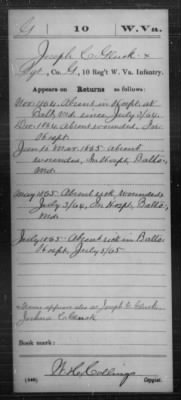 G | 10 | W. Va.
Joseph C. Gluck
Sgt., Co. G, 10 Reg't W. Va. Infantry.
Appears on Returns as follows:
Nov 1864. Absent in Hospt. at
Balto, Md. since July 3/64.
Dec. 1864. Absent wounded, In
Hospt.
Jan. to Mar. 1865 absent
wounded, In Hospt. Balto.,
Md.
May 1865 Absent sick wounded
July 3/64, In Hospt., Balto.,
Md.
July 1865. Absent sick in Balto.
Hospt., July 3/65
Name appears also as Joseph C.
Joshua
Book mark:
W. H. Collings
(546) Copyist.